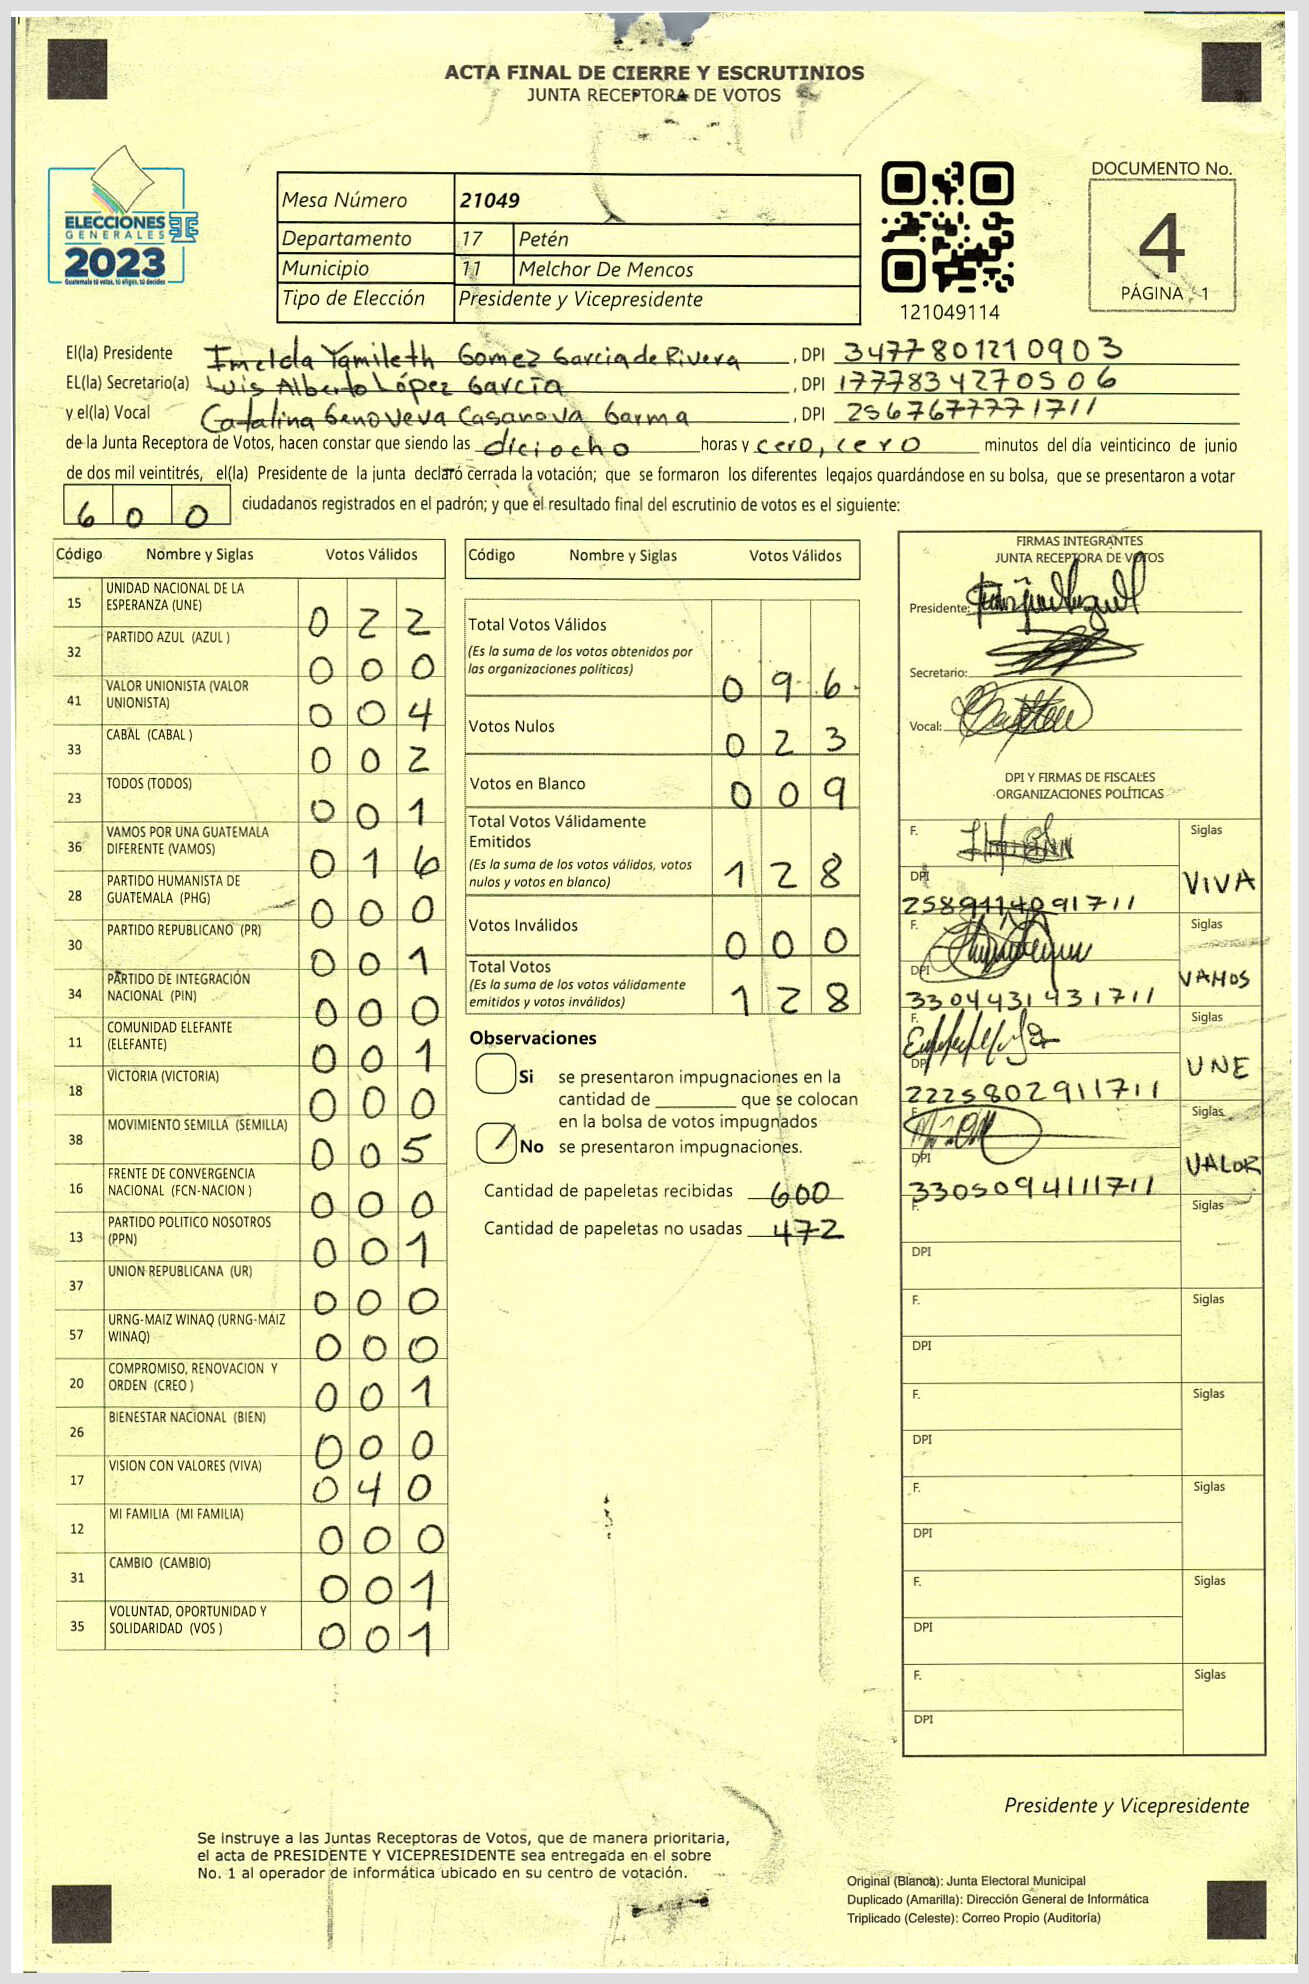 ACTA FINAL DE CIERRE Y ESCRUTINIOS
JUNTA RECEPTORA DE VOTOS
ELECCIONES
GENERALES
2023
Guatemala tú votas, tú eliges, tú decides
TSE
Mesa Número 21049
Departamento 17 Petén
Municipio 11 Melchor De Mencos
Tipo de Elección Presidente y Vicepresidente
121049114
DOCUMENTO No.
4
PÁGINA 1
El(la) Presidente Imelda Yamileth Gomez Garcia de Rivera, DPI 3477801210903
EL(la) Secretario(a) Luis Alberto López García, DPI 1777834270506
y el(la) Vocal Catalina Genoveva Casanova Garma, DPI 2567677771711
de la Junta Receptora de Votos, hacen constar que siendo las diciocho horas y cero, cero minutos del día veinticinco de junio
de dos mil veintitrés, el(la) Presidente de la junta declaró cerrada la votación; que se formaron los diferentes legajos quardándose en su bolsa, que se presentaron a votar
600 ciudadanos registrados en el padrón; y que el resultado final del escrutinio de votos es el siguiente:
Código Nombre y Siglas Votos Válidos
15 UNIDAD NACIONAL DE LA ESPERANZA (UNE) 022
32 PARTIDO AZUL (AZUL ) 000
41 VALOR UNIONISTA (VALOR UNIONISTA) 004
33 CABAL (CABAL ) 002
23 TODOS (TODOS) 001
36 VAMOS POR UNA GUATEMALA DIFERENTE (VAMOS) 016
28 PARTIDO HUMANISTA DE GUATEMALA (PHG) 000
30 PARTIDO REPUBLICANO (PR) 001
34 PARTIDO DE INTEGRACIÓN NACIONAL (PIN) 000
11 COMUNIDAD ELEFANTE (ELEFANTE) 001
18 VICTORIA (VICTORIA) 000
38 MOVIMIENTO SEMILLA (SEMILLA) 005
16 FRENTE DE CONVERGENCIA NACIONAL (FCN-NACION ) 000
13 PARTIDO POLITICO NOSOTROS (PPN) 001
37 UNION REPUBLICANA (UR) 000
57 URNG-MAIZ WINAQ (URNG-MAIZ WINAQ) 000
20 COMPROMISO, RENOVACION Y ORDEN (CREO ) 001
26 BIENESTAR NACIONAL (BIEN) 000
17 VISION CON VALORES (VIVA) 040
12 MI FAMILIA (MI FAMILIA) 000
31 CAMBIO (CAMBIO) 001
35 VOLUNTAD, OPORTUNIDAD Y SOLIDARIDAD (VOS ) 001
Código Nombre y Siglas Votos Válidos
Total Votos Válidos 096
(Es la suma de los votos obtenidos por
las organizaciones políticas)
Votos Nulos 023
Votos en Blanco 009
Total Votos Válidamente
Emitidos 128
(Es la suma de los votos válidos, votos
nulos y votos en blanco)
Votos Inválidos 000
Total Votos 128
(Es la suma de los votos válidamente
emitidos y votos inválidos)
Observaciones
Si se presentaron impugnaciones en la
cantidad de ________ que se colocan
en la bolsa de votos impugnados
No se presentaron impugnaciones.
Cantidad de papeletas recibidas 600
Cantidad de papeletas no usadas 472
FIRMAS INTEGRANTES
JUNTA RECEPTORA DE VOTOS
Presidente:
Secretario:
Vocal:
DPI Y FIRMAS DE FISCALES
ORGANIZACIONES POLÍTICAS
F. Siglas
DPI VIVA
2589414091711
F. Siglas
DPI VAMOS
3304431431711
F. Siglas
DPI UNE
2225802911711
F. Siglas
DPI VALOR
3305094111711
F. Siglas
DPI
F. Siglas
DPI
F. Siglas
DPI
F. Siglas
DPI
F. Siglas
DPI
F. Siglas
DPI
Presidente y Vicepresidente
Se instruye a las Juntas Receptoras de Votos, que de manera prioritaria,
el acta de PRESIDENTE Y VICEPRESIDENTE sea entregada en el sobre
No. 1 al operador de informática ubicado en su centro de votación.
Original (Blanca): Junta Electoral Municipal
Duplicado (Amarilla): Dirección General de Informática
Triplicado (Celeste): Correo Propio (Auditoría)